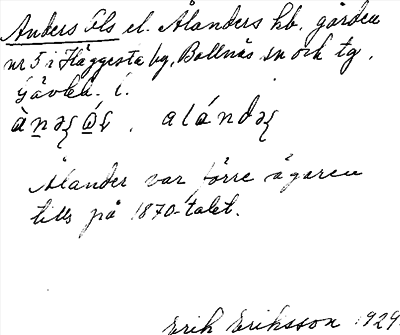 Anders Ols el. Ålanders hb. gården
nr 5 i Häggesta by, Bollnäs sn och tg,
Gävleb. l.
àn̲əʂ ó̲ɭʂ . alándəʂ
Ålander var förre ägaren
tills på 1870-talet.
Erik Eriksson 1929